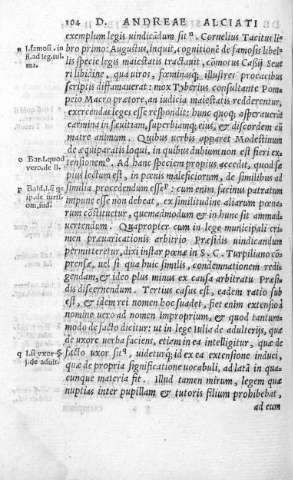 104 D. ANDREAE ALCIATI
exemplum legis uindicandum sit ⁿ. Cornelius Tacitus li-
n l.famosi, in
bro primo: Augustus, inquit, cognitionē de famosis libel-
fi.ad leg.
lis specie legis maiestatis tractauit, cōmotus Cassij Seue
ri libidine, qua uiros, fœminasq́; illustres procacibus
scriptis diffamauerat: mox Tyberius consultante Pom-
peio Macro prætore, an iudicia maiestatis redderentur,
exercendas leges esse respondit: hunc quoq; asperauere
carmina in sæuitiam, superbiamq́; eius, & discordem cū
matre animum. Quibus uerbis apparet Modestinum
de æquiparatis loqui, in quibus dubium non est fieri ex-
o Bar.l.quod
tensionem º. Ad hanc speciem propius accedit, quod sæ
vero.de ll.
pius lectum est, in pœnis maleficiorum, de similibus ad
p Bald.l.
similia procedendum esse ᵖ: cum enim facinus patratum
impune esse non debeat, ex similitudine aliarum pœna
rum cōstituetur, quemadmodum & in hunc sit animad
uertendum. Quapropter cum ius lege municipali cri-
men præuaricationis arbitrio Præsidis uindicandum
permitteretur, dixi instar pœnæ in S. C. Turpiliano cō
prensæ, uel si qua huic similis, condemnationem redi-
gendam, & ideo plus minus ex causa arbitratu Præsi-
dis discernendum. Tertius casus est, eadem ratio sub
est, & idem rei nomen hoc suadet, fiet enim extensio à
nomine uero ad nomen improprium, & quod tantum-
modo de facto dicitur: ut in lege Iulia de adulterijs, quæ
de uxore uerba faciens, etiam in ea intelligitur, quæ de
q l.si vxor §.
facto uxor sit ᑫ, uideturq́; id ex ea extensione induci,
j.de adult.
quæ de propria significatione uocabuli, ad latā in qua-
cunque materia fit. Illud tamen mirum, legem quæ
nuptias inter pupillam & tutoris filium prohibebat,
ad eum